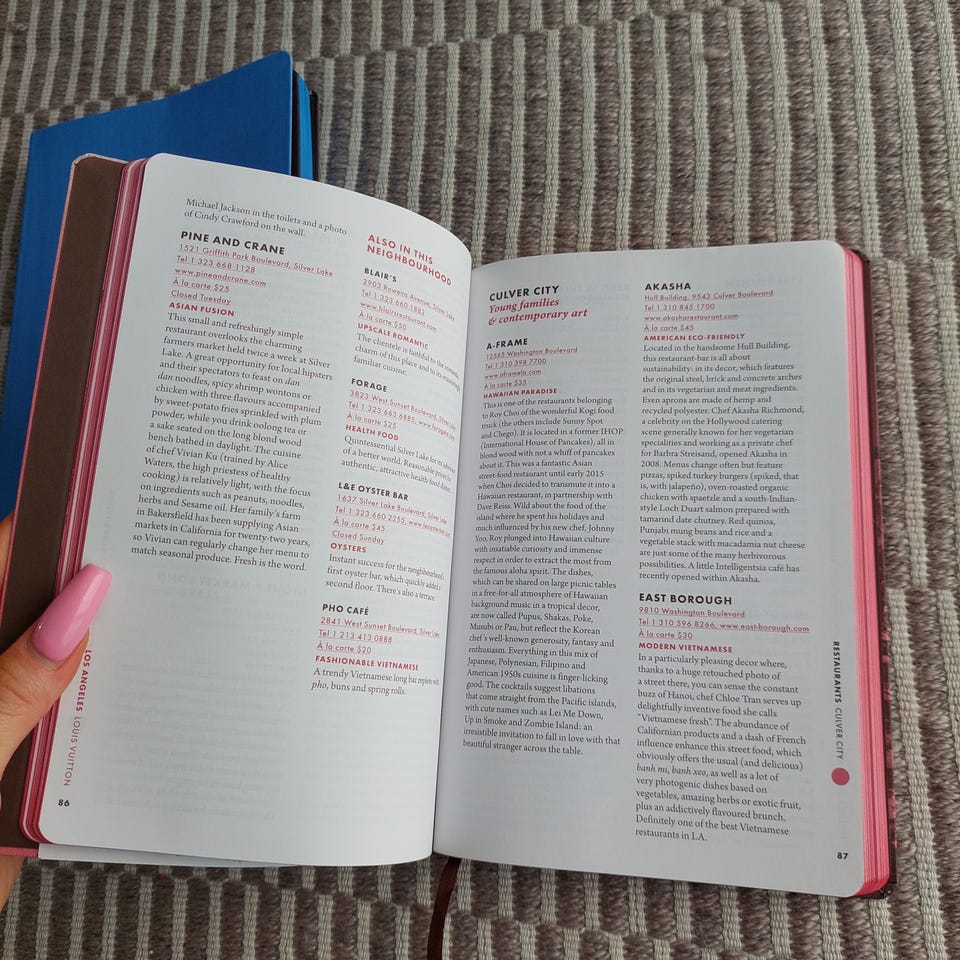 Michael Jackson in the toilets and a photo
of Cindy Crawford on the wall.
PINE AND CRANE
1521 Griffith Park Boulevard, Silver Lake
Tel 1 323 668 1128
www.pineandcrane.com
À la carte $25
Closed Tuesday
ASIAN FUSION
This small and refreshingly simple
restaurant overlooks the charming
farmers market held twice a week at Silver
Lake. A great opportunity for local hipsters
and their spectators to feast on dan
dan noodles, spicy shrimp wontons or
chicken with three flavours accompanied
by sweet-potato fries sprinkled with plum
powder, while you drink oolong tea or
a sake seated on the long blond wood
bench bathed in daylight. The cuisine
of chef Vivian Ku (trained by Alice
Waters, the high priestess of healthy
cooking) is relatively light, with the focus
on ingredients such as peanuts, noodles,
herbs and Sesame oil. Her family's farm
in Bakersfield has been supplying Asian
markets in California for twenty-two years,
so Vivian can regularly change her menu to
match seasonal produce. Fresh is the word.
ALSO IN THIS
NEIGHBOURHOOD
BLAIR'S
2903 Rowena Avenue, Silver Lake
Tel 1 323 660 1882
www.blairsrestaurant.com
À la carte $50
UPSCALE ROMANTIC
The clientele is faithful to the romantic
charm of this place and to its
familiar cuisine.
FORAGE
3823 West Sunset Boulevard, Silver
Tel 1 323 663 6885,
À la carte $25
HEALTH FOOD
Quintessential Silver Lake for
of a better world. Reasonable prices for
authentic, attractive health-food dishes.
L&E OYSTER BAR
1637 Silver Lake Boulevard, Silver
Tel 1 323 660 2255,
À la carte $45
Closed Sunday
OYSTERS
Instant success for the neighbourhood's
first oyster bar, which quickly added a
second floor. There's also a terrace.
PHO CAFÉ
2841 West Sunset Boulevard, Silver Lake
Tel 1 213 413 0888
À la carte $20
FASHIONABLE VIETNAMESE
A trendy Vietnamese long bar replete with
pho, buns and spring rolls.
LOS ANGELES LOUIS VUITTON
86
CULVER CITY
Young families
& contemporary art
A-FRAME
12565 Washington Boulevard
Tel 1 310 398 7700
www.aframela.com
À la carte $35
HAWAIIAN PARADISE
This is one of the restaurants belonging
to Roy Choi of the wonderful Kogi food
truck (the others include Sunny Spot
and Chego). It is located in a former IHOP
(International House of Pancakes), all in
blond wood with not a whiff of pancakes
about it. This was a fantastic Asian
street-food restaurant until early 2015
when Choi decided to transmute it into a
Hawaiian restaurant, in partnership with
Dave Reiss. Wild about the food of the
island where he spent his holidays and
much influenced by his new chef, Johnny
Yoo, Roy plunged into Hawaiian culture
with insatiable curiosity and immense
respect in order to extract the most from
the aloha spirit. The dishes,
which can be shared on large picnic tables
in a free-for-all atmosphere of Hawaiian
background music in a tropical decor,
are now called Pupus, Shakas, Poke,
Musubi or Pau, but reflect the Korean
chef's well-known generosity, fantasy and
enthusiasm. Everything in this mix of
Japanese, Polynesian, Filipino and
American 1950s cuisine is finger-licking
good. The cocktails suggest libations
that come straight from the Pacific islands,
with cute names such as Lei Me Down,
Up in Smoke and Zombie Island: an
irresistible invitation to fall in love with that
beautiful stranger across the table.
AKASHA
Hull Building, 9543 Culver Boulevard
Tel 1 310 845 1700
www.akasharestaurant.com
À la carte $45
AMERICAN ECO-FRIENDLY
Located in the handsome Hull Building,
this restaurant-bar is all about
sustainability: in its decor, which features
the original steel, brick and concrete arches
and in its vegetarian and meat ingredients.
Even aprons are made of hemp and
recycled polyester. Chef Akasha Richmond,
a celebrity on the Hollywood catering
scene generally known for her vegetarian
specialities and working as a private chef
for Barbra Streisand, opened Akasha in
2008. Menus change often but feature
pizzas, spiked turkey burgers (spiked, that
is, with jalapeño), oven-roasted organic
chicken with spaetzle and a south-Indian-
style Loch Duart salmon prepared with
tamarind date chutney. Red quinoa,
Punjabi mung beans and rice and a
vegetable stack with macadamia nut cheese
are just some of the many herbivorous
possibilities. A little Intelligentsia café has
recently opened within Akasha.
EAST BOROUGH
9810 Washington Boulevard
Tel 1 310 596 8266, www.east-borough.com
À la carte $30
MODERN VIETNAMESE
In a particularly pleasing decor where,
thanks to a huge retouched photo of
a street there, you can sense the constant
buzz of Hanoi, chef Chloe Tran serves up
delightfully inventive food she calls
"Vietnamese fresh". The abundance of
Californian products and a dash of French
influence enhance this street food, which
obviously offers the usual (and delicious)
banh mi, banh xeo, as well as a lot of
very photogenic dishes based on
vegetables, amazing herbs or exotic fruit,
plus an addictively flavoured brunch.
Definitely one of the best Vietnamese
restaurants in LA.
RESTAURANTS CULVER CITY
87